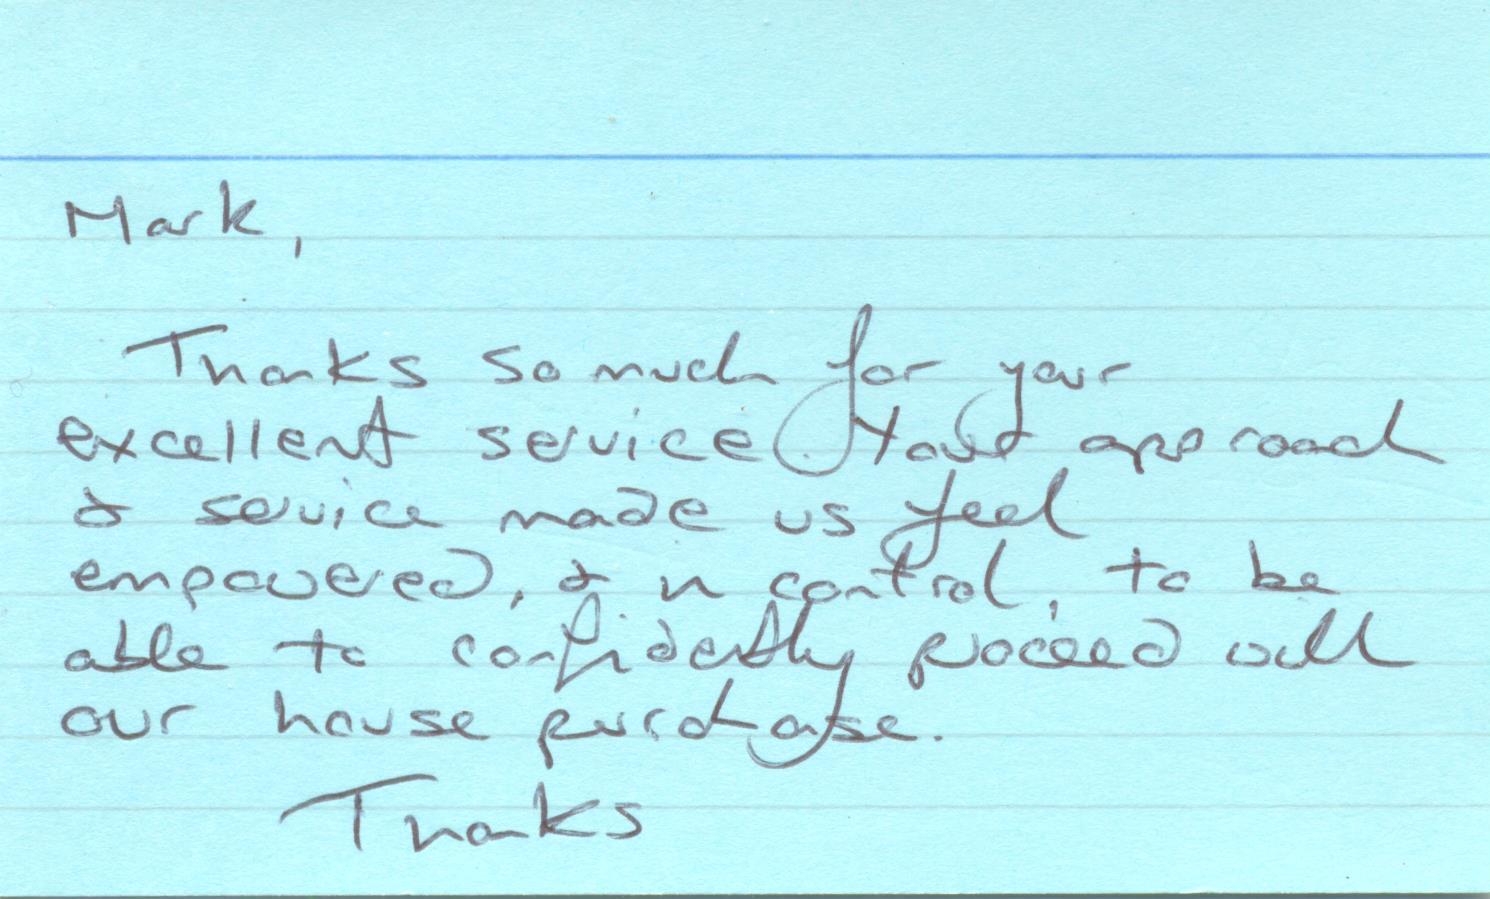 Mark,
Thanks so much for your
excellent service. Your approach
& service made us feel
empowered, & in control, to be
able to confidently proceed with
our house purchase.
Thanks